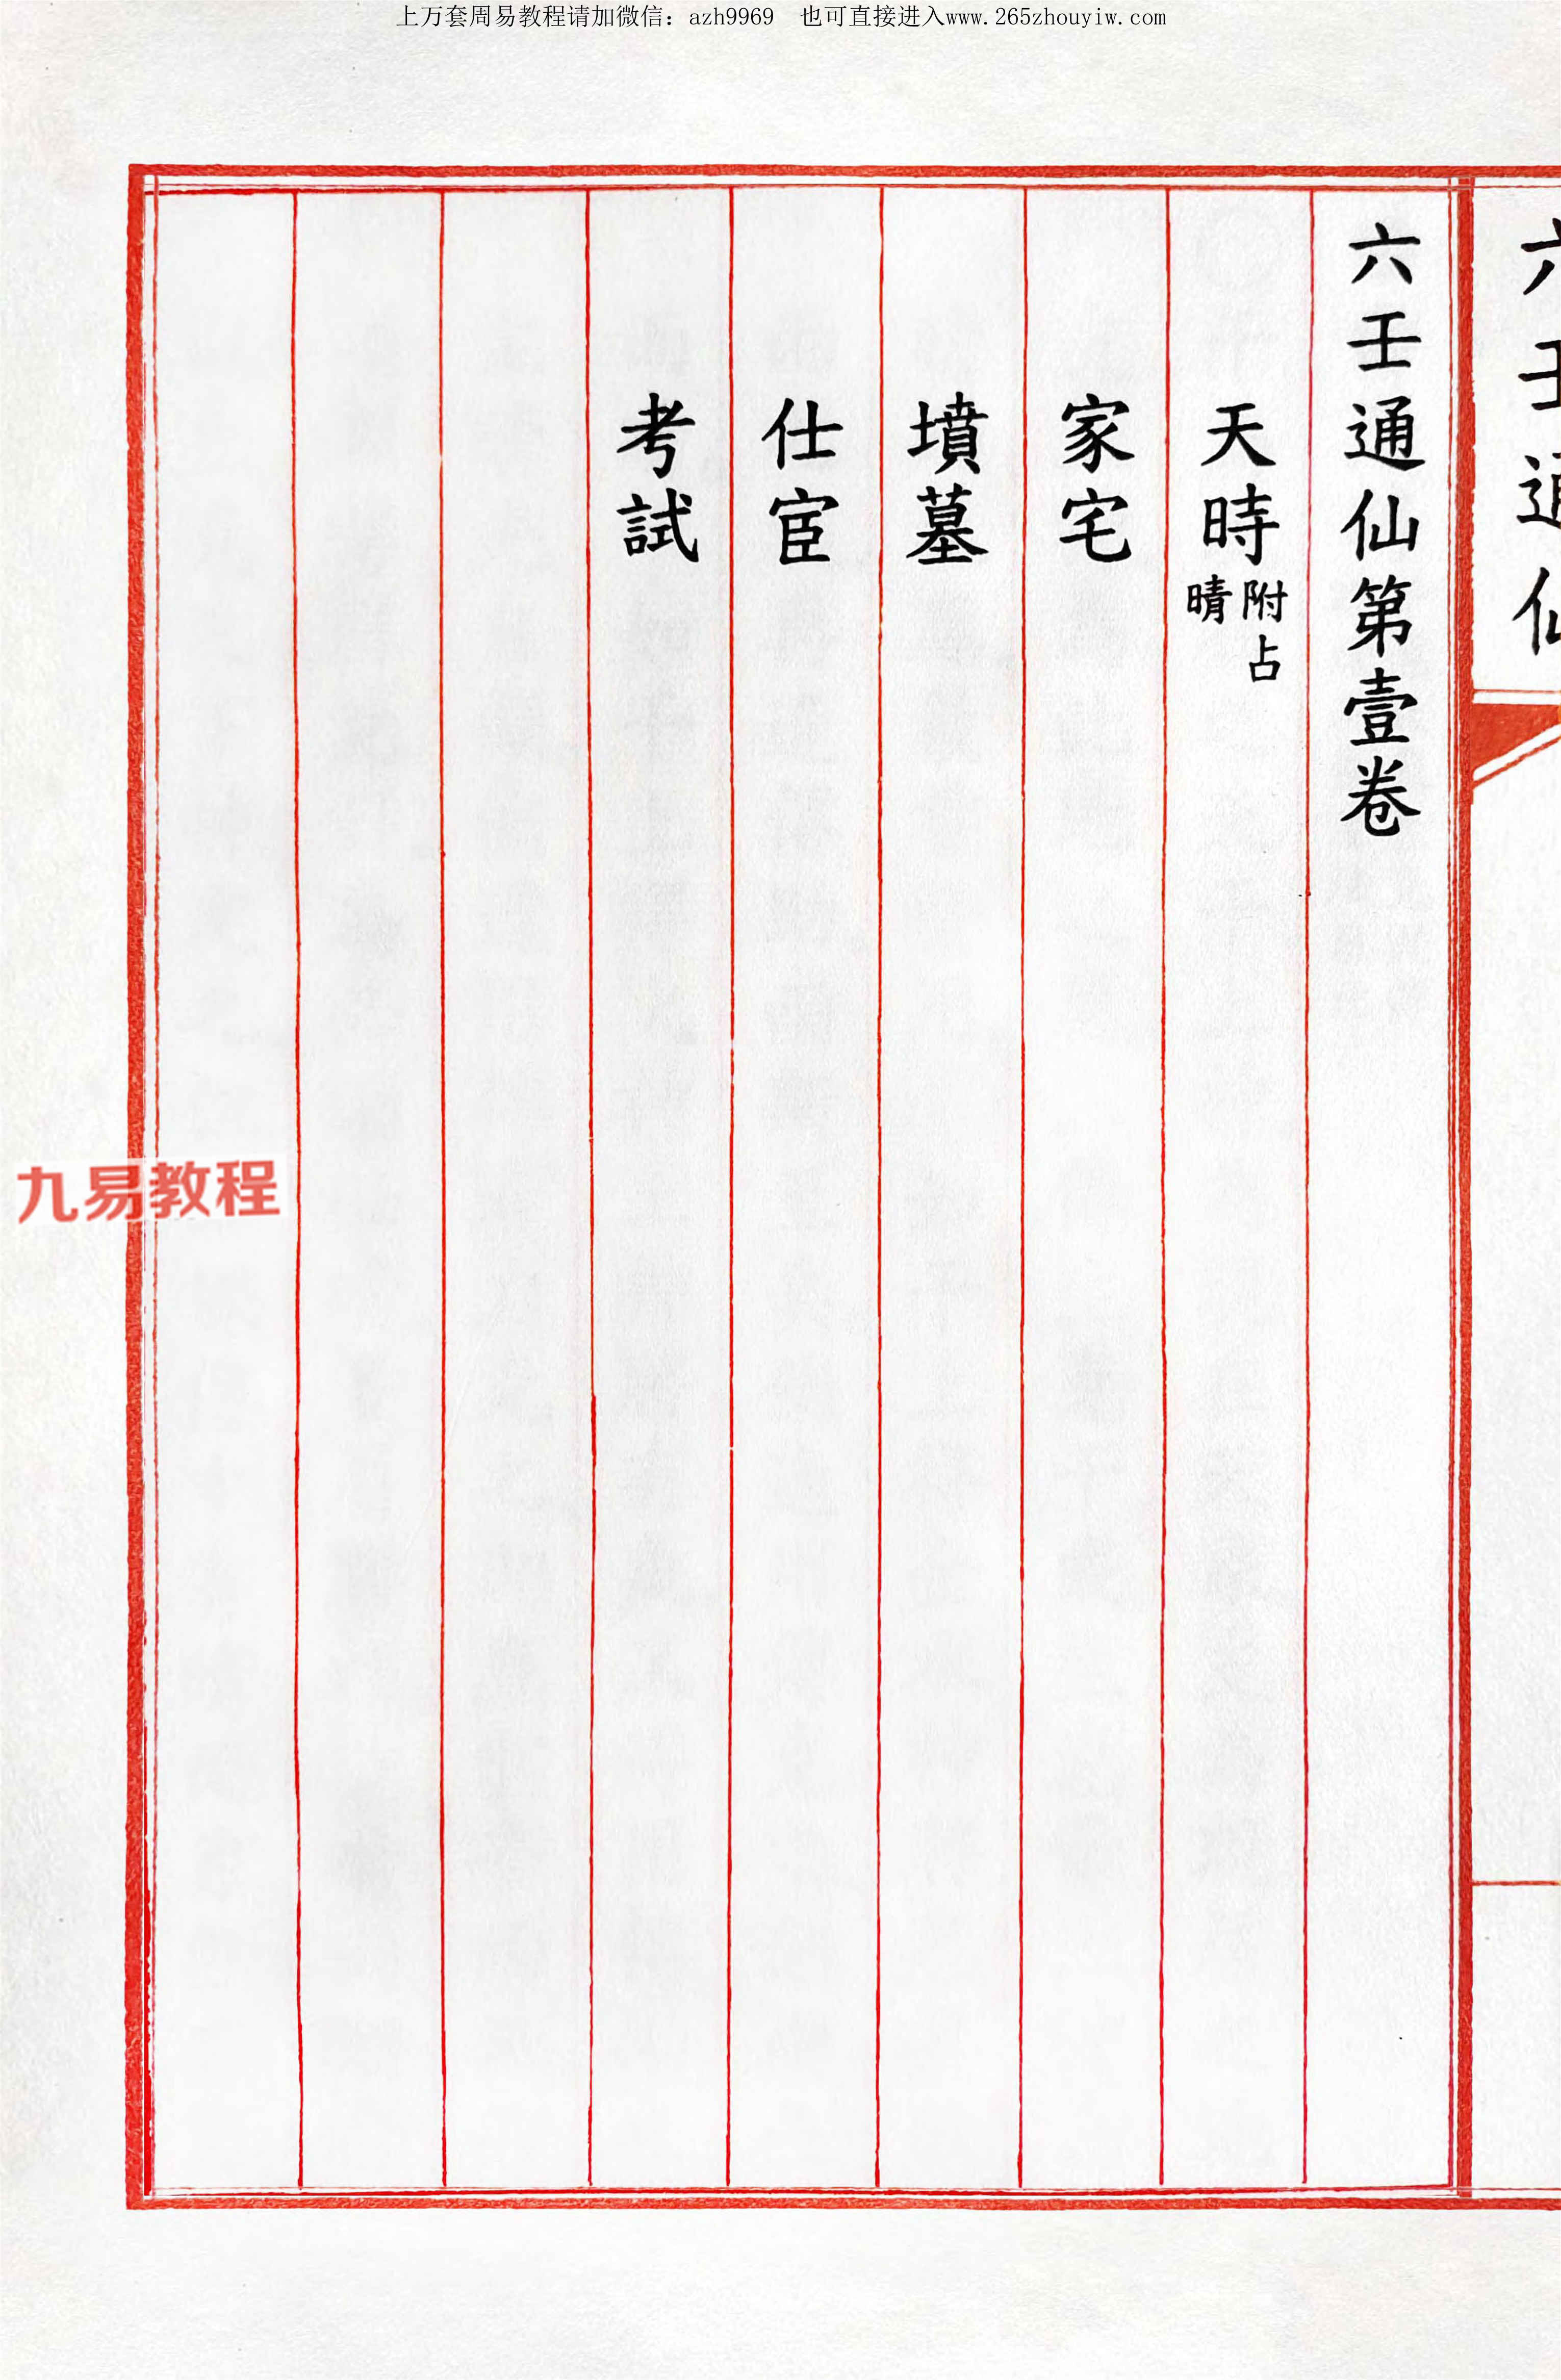 上万套周易教程请加微信：azh9969 也可直接进入www.265zhouyiw.com
六壬通仙
六壬通仙第壹卷
天時附占晴
家宅
墳墓
仕宦
考試
九易教程